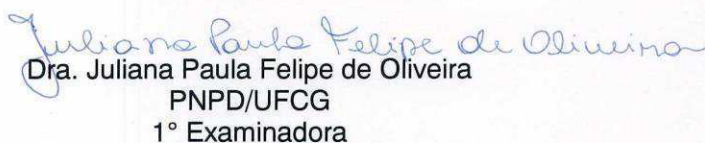 Juliana Paula Felipe de Oliveira
Dra. Juliana Paula Felipe de Oliveira
PNPD/UFCG
1° Examinadora